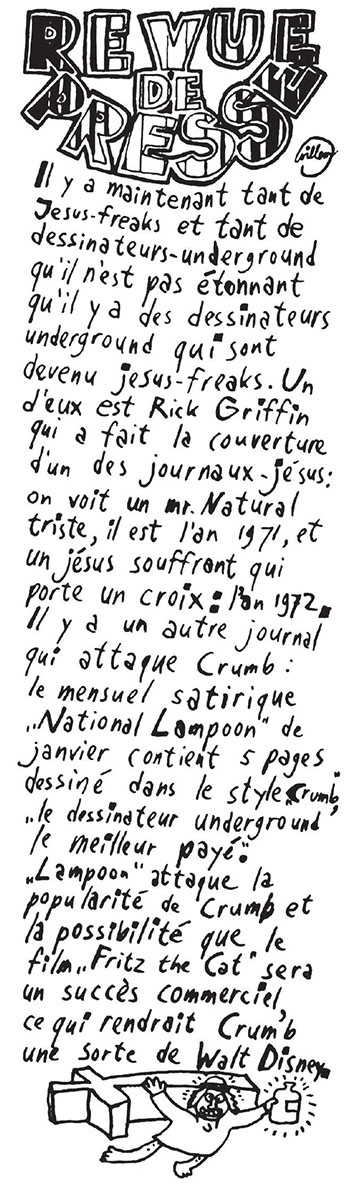 REVUE
DE
PRESSE
Willem
Il y a maintenant tant de
Jesus-freaks et tant de
dessinateurs-underground
qu'il n'est pas étonnant
qu'il y a des dessinateurs
underground qui sont
devenu jesus-freaks. Un
d'eux est Rick Griffin
qui a fait la couverture
d'un des journaux-jésus:
on voit un mr. Natural
triste, il est l'an 1971, et
un jésus souffrant qui
porte un croix: l'an 1972.
Il y a un autre journal
qui attaque Crumb:
le mensuel satirique
„National Lampoon" de
janvier contient 5 pages
dessiné dans le style „Crumb",
„le dessinateur underground
le meilleur payé".
„Lampoon" attaque la
popularité de Crumb et
la possibilité que le
film „Fritz the Cat" sera
un succès commercial,
ce qui rendrait Crumb
une sorte de Walt Disney.